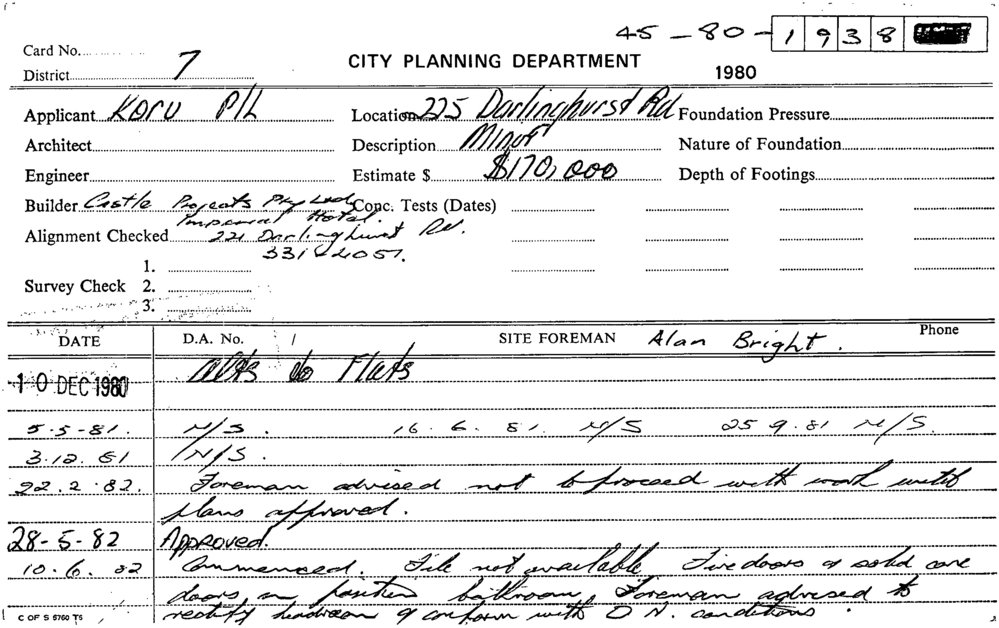 45-80-1938
Card No.
District 7
CITY PLANNING DEPARTMENT
1980
Applicant KORU P/L
Location 225 Darlinghurst Rd
Foundation Pressure
Architect
Description Minor
Nature of Foundation
Engineer
Estimate $ $170,000
Depth of Footings
Builder Castle Projects Pty Ltd
Imperial Hotel.
Conc. Tests (Dates)
Alignment Checked
221 Darlinghurst Rd.
331 4051.
1.
Survey Check 2.
3.
DATE
D.A. No. /
SITE FOREMAN Alan Bright.
Phone
10 DEC 1980 alts to Flats
5-5-81. N/S. 16. 6. 81. N/S 25 9.81 N/S.
3.12.81 N/S.
22.2.82. Foreman advised not to proceed with work until
plans approved.
28-5-82 Approved.
10.6.82 Commenced. File not available Fire doors & solid core
doors in position bathroom. Foreman advised to
rectify & conform with conditions.
C OF S 5760 T5